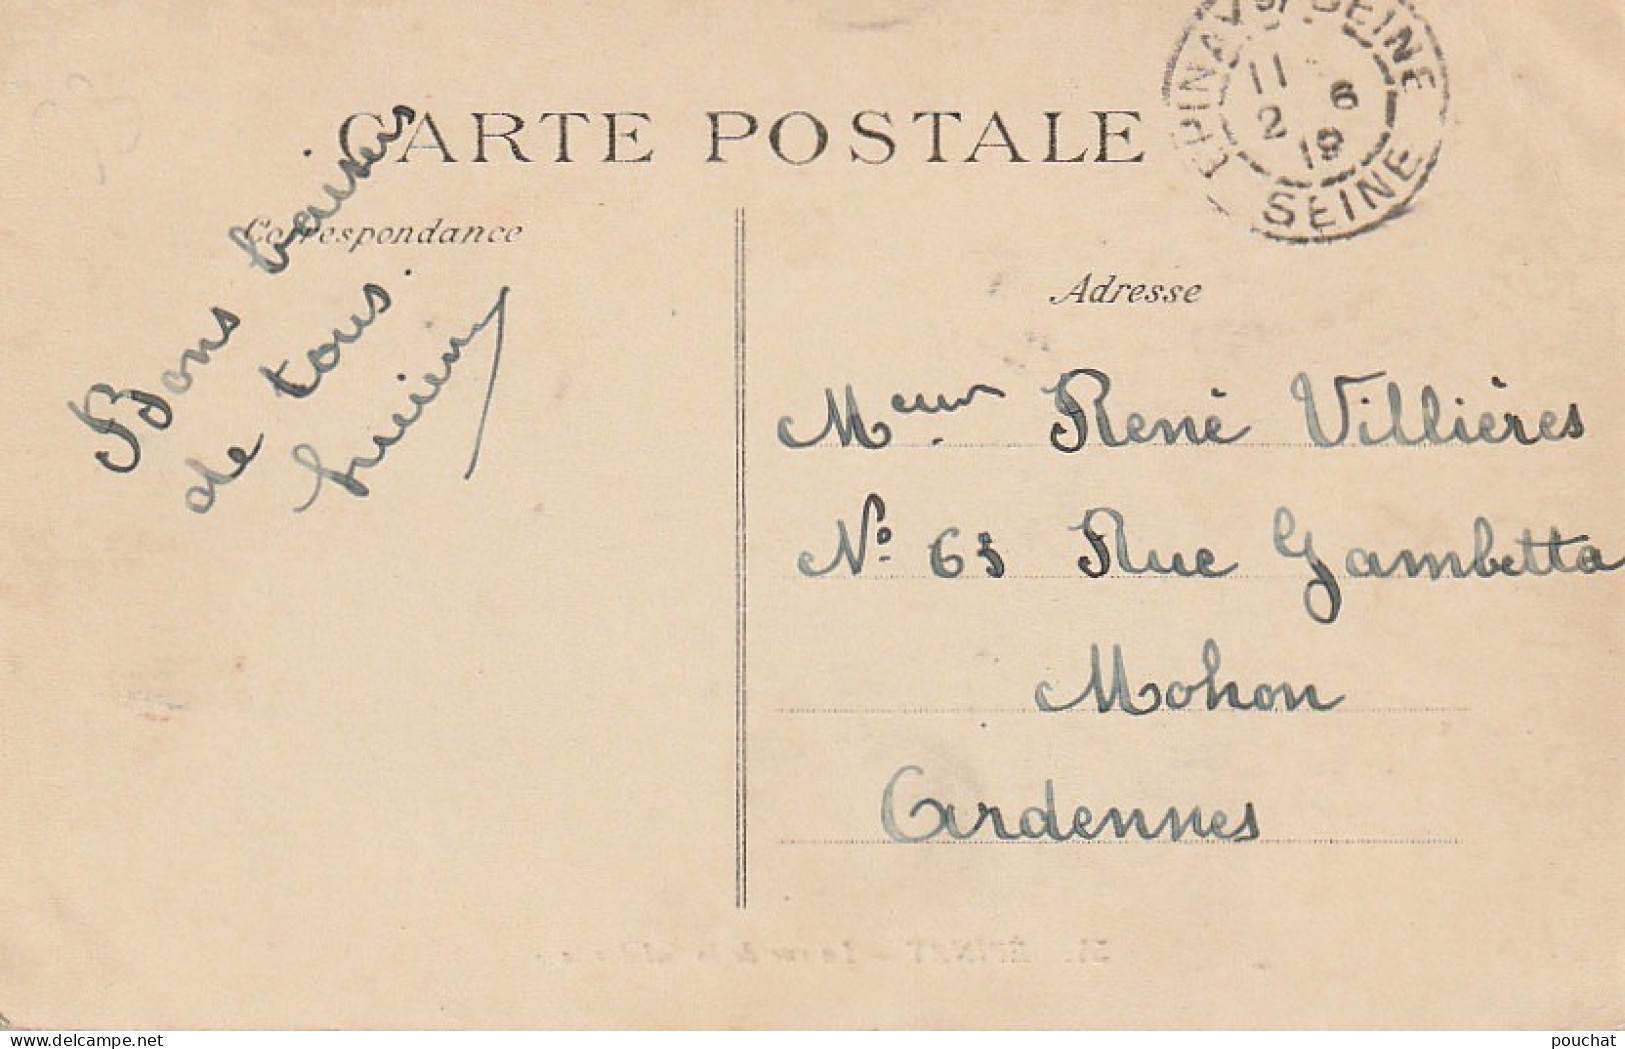 CARTE POSTALE
Correspondance
Bons baisers
de tous.
Lucien
EPINAY SR SEINE
11 6
2 19
SEINE
Adresse
Meur René Villières
No. 63 Rue Gambetta
Mohon
Ardennes
www.delcampe.net
pouchat